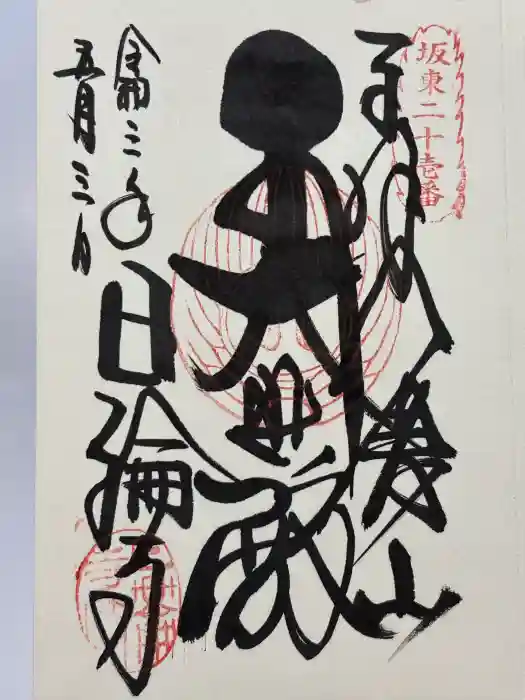 坂東二十壱番
奉拝
八溝山
大悲殿
日輪寺
令和三年
五月三日